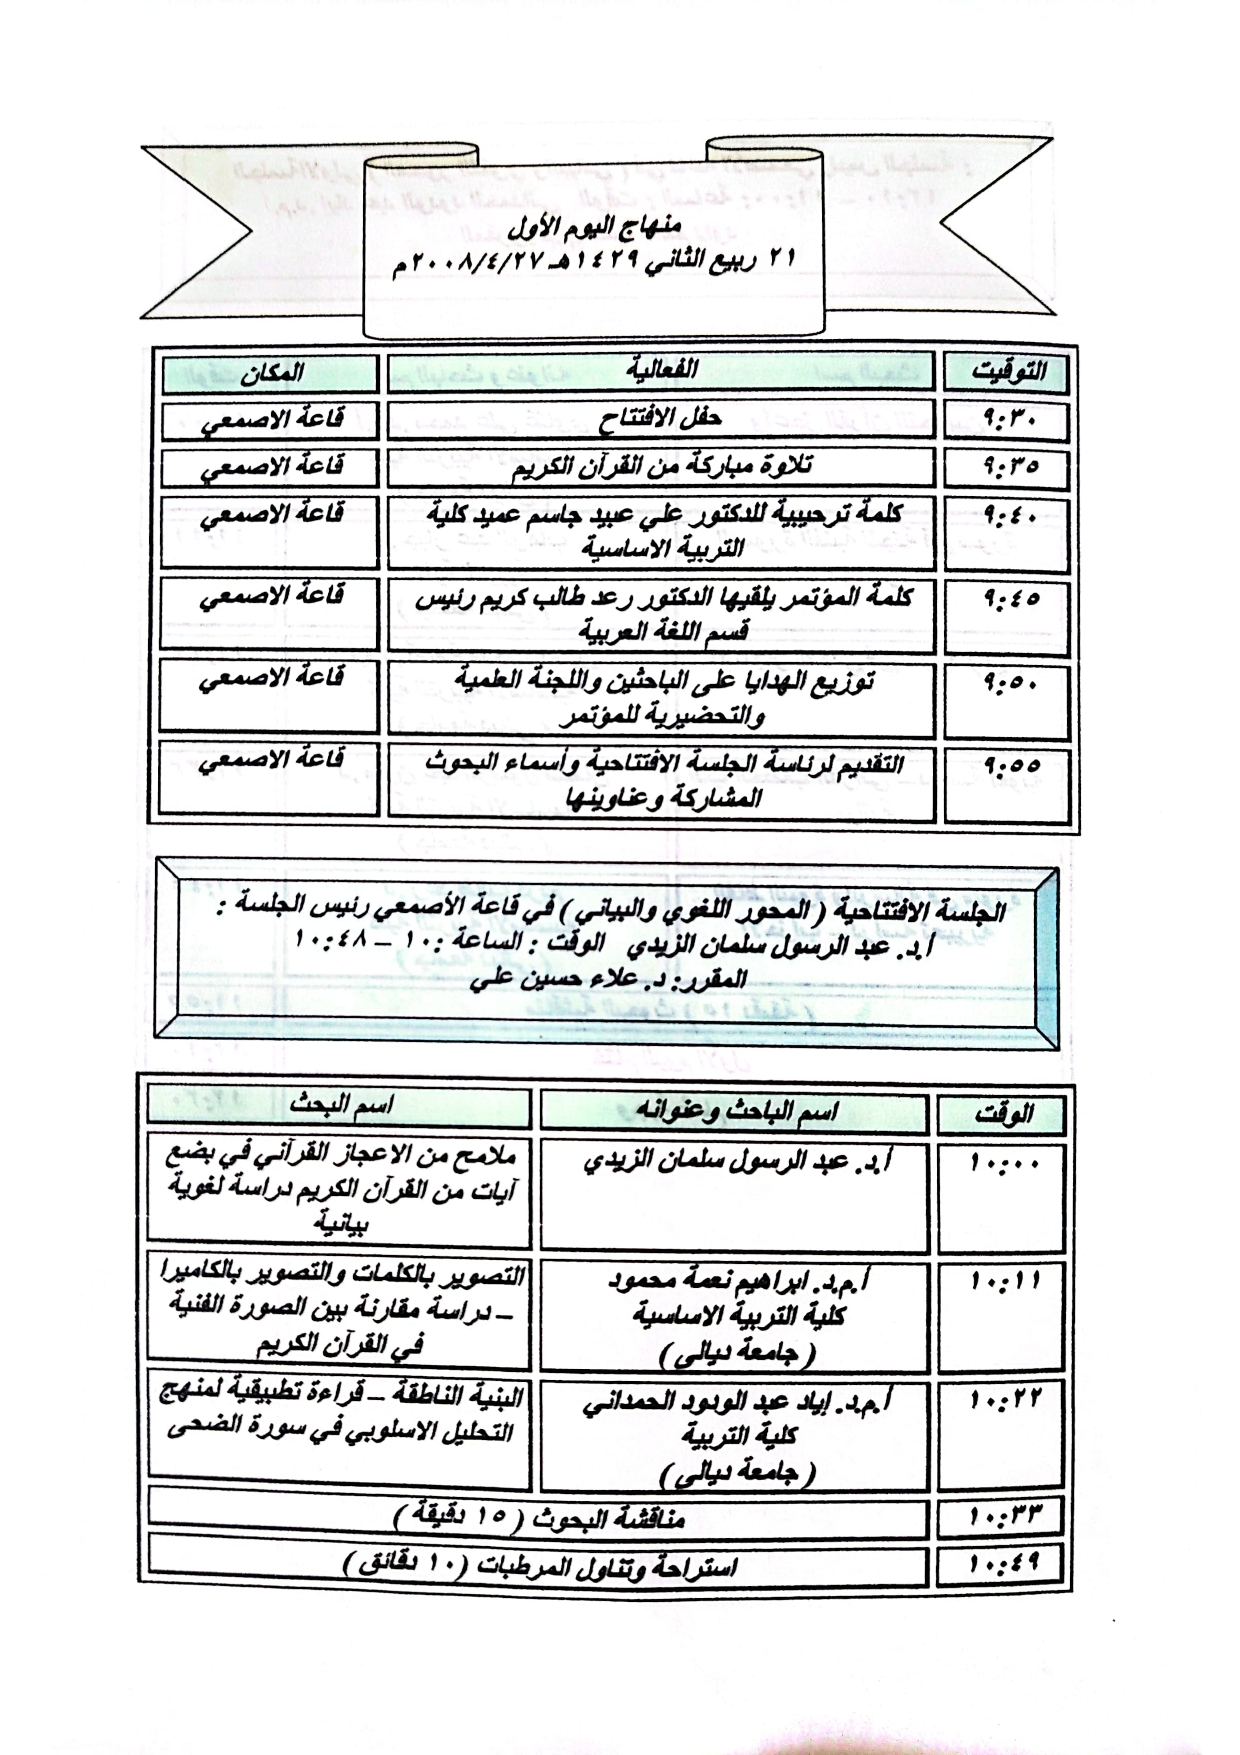 منهاج اليوم الأول
٢١ ربيع الثاني ١٤٢٩هـ ٢٠٠٨/٤/٢٧م
التوقيت الفعالية المكان
٩:٣٠ حفل الافتتاح قاعة الاصمعي
٩:٣٥ تلاوة مباركة من القرآن الكريم قاعة الاصمعي
٩:٤٠ كلمة ترحيبية للدكتور علي عبيد جاسم عميد كلية قاعة الاصمعي
التربية الاساسية
٩:٤٥ كلمة المؤتمر يلقيها الدكتور رعد طالب كريم رئيس قاعة الاصمعي
قسم اللغة العربية
٩:٥٠ توزيع الهدايا على الباحثين واللجنة العلمية قاعة الاصمعي
والتحضيرية للمؤتمر
٩:٥٥ التقديم لرئاسة الجلسة الافتتاحية وأسماء البحوث قاعة الاصمعي
المشاركة وعناوينها
الجلسة الافتتاحية ( المحور اللغوي والبياني ) في قاعة الأصمعي رئيس الجلسة :
أ.د. عبد الرسول سلمان الزيدي الوقت : الساعة :١٠ – ١٠:٤٨
المقرر: د. علاء حسين علي
الوقت اسم الباحث وعنوانه اسم البحث
١٠:٠٠ أ.د. عبد الرسول سلمان الزيدي ملامح من الاعجاز القرآني في بضع
آيات من القرآن الكريم دراسة لغوية
بيانية
١٠:١١ أ.م.د. ابراهيم نعمة محمود التصوير بالكلمات والتصوير بالكاميرا
كلية التربية الاساسية – دراسة مقارنة بين الصورة الفنية
( جامعة ديالى ) في القرآن الكريم
١٠:٢٢ أ.م.د. إياد عبد الودود الحمداني البنية الناطقة – قراءة تطبيقية لمنهج
كلية التربية التحليل الاسلوبي في سورة الضحى
( جامعة ديالى )
١٠:٣٣ مناقشة البحوث ( ١٥ دقيقة )
١٠:٤٩ استراحة وتناول المرطبات (١٠ دقائق )